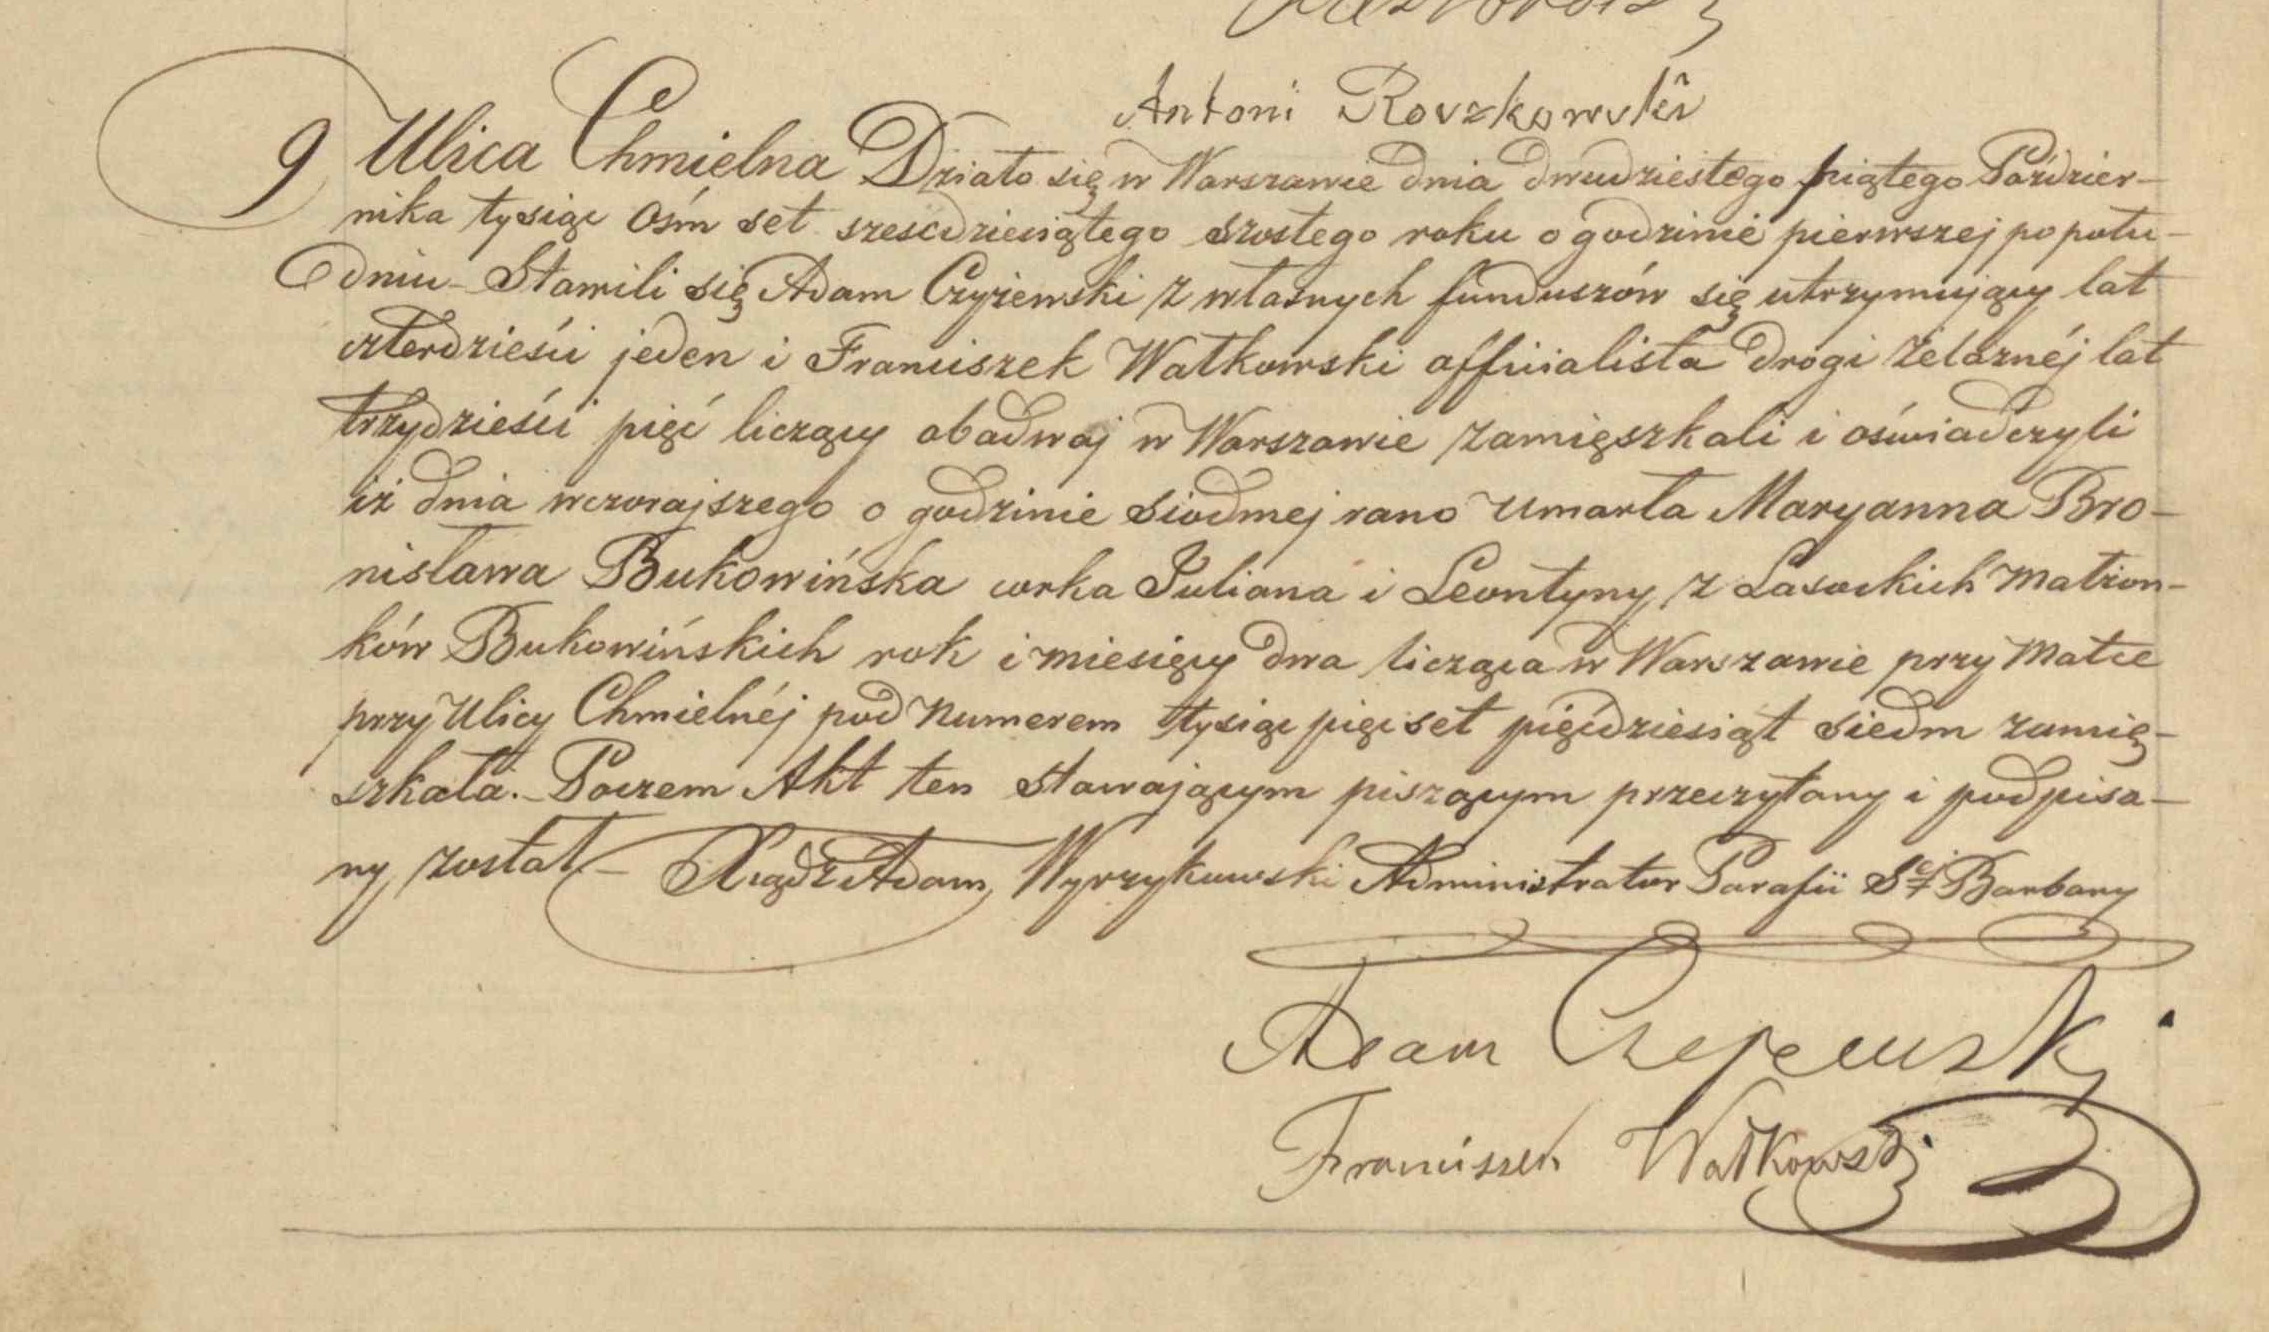 Antoni Roszkowski
9 Ulica Chmielna Działo się w Warszawie dnia dwudziestego piątego Paździer-
nika tysiąc ośm set sześćdziesiątego szostego roku o godzinie pierwszej popołu-
dniu - Stawili się Adam Czyżewski z własnych funduszów się utrzymujący lat
czterdzieści jeden i Franciszek Watkowski officialista drogi żelaznéj lat
trzydzieści pięć liczący obadwaj w Warszawie zamięszkali i oświadczyli
iż dnia wczorajszego o godzinie siodmej rano umarła Maryanna Bro-
nisława Bukowińska corka Juliana i Leontyny z Lasockich Małżon-
ków Bukowińskich rok i miesięcy dwa licząca w Warszawie przy Matce
przy Ulicy Chmielnéj pod Numerem tysiąc pięc set pięćdziesiąt siedm zamię-
szkała. - Poczem Akt ten stawającym piszącym przeczytany i podpisa-
ny został - Xiądz Adam Wyrzykowski Administrator Parafii Sej Barbary
Adam Czyżewski
Franciszek Watkowski